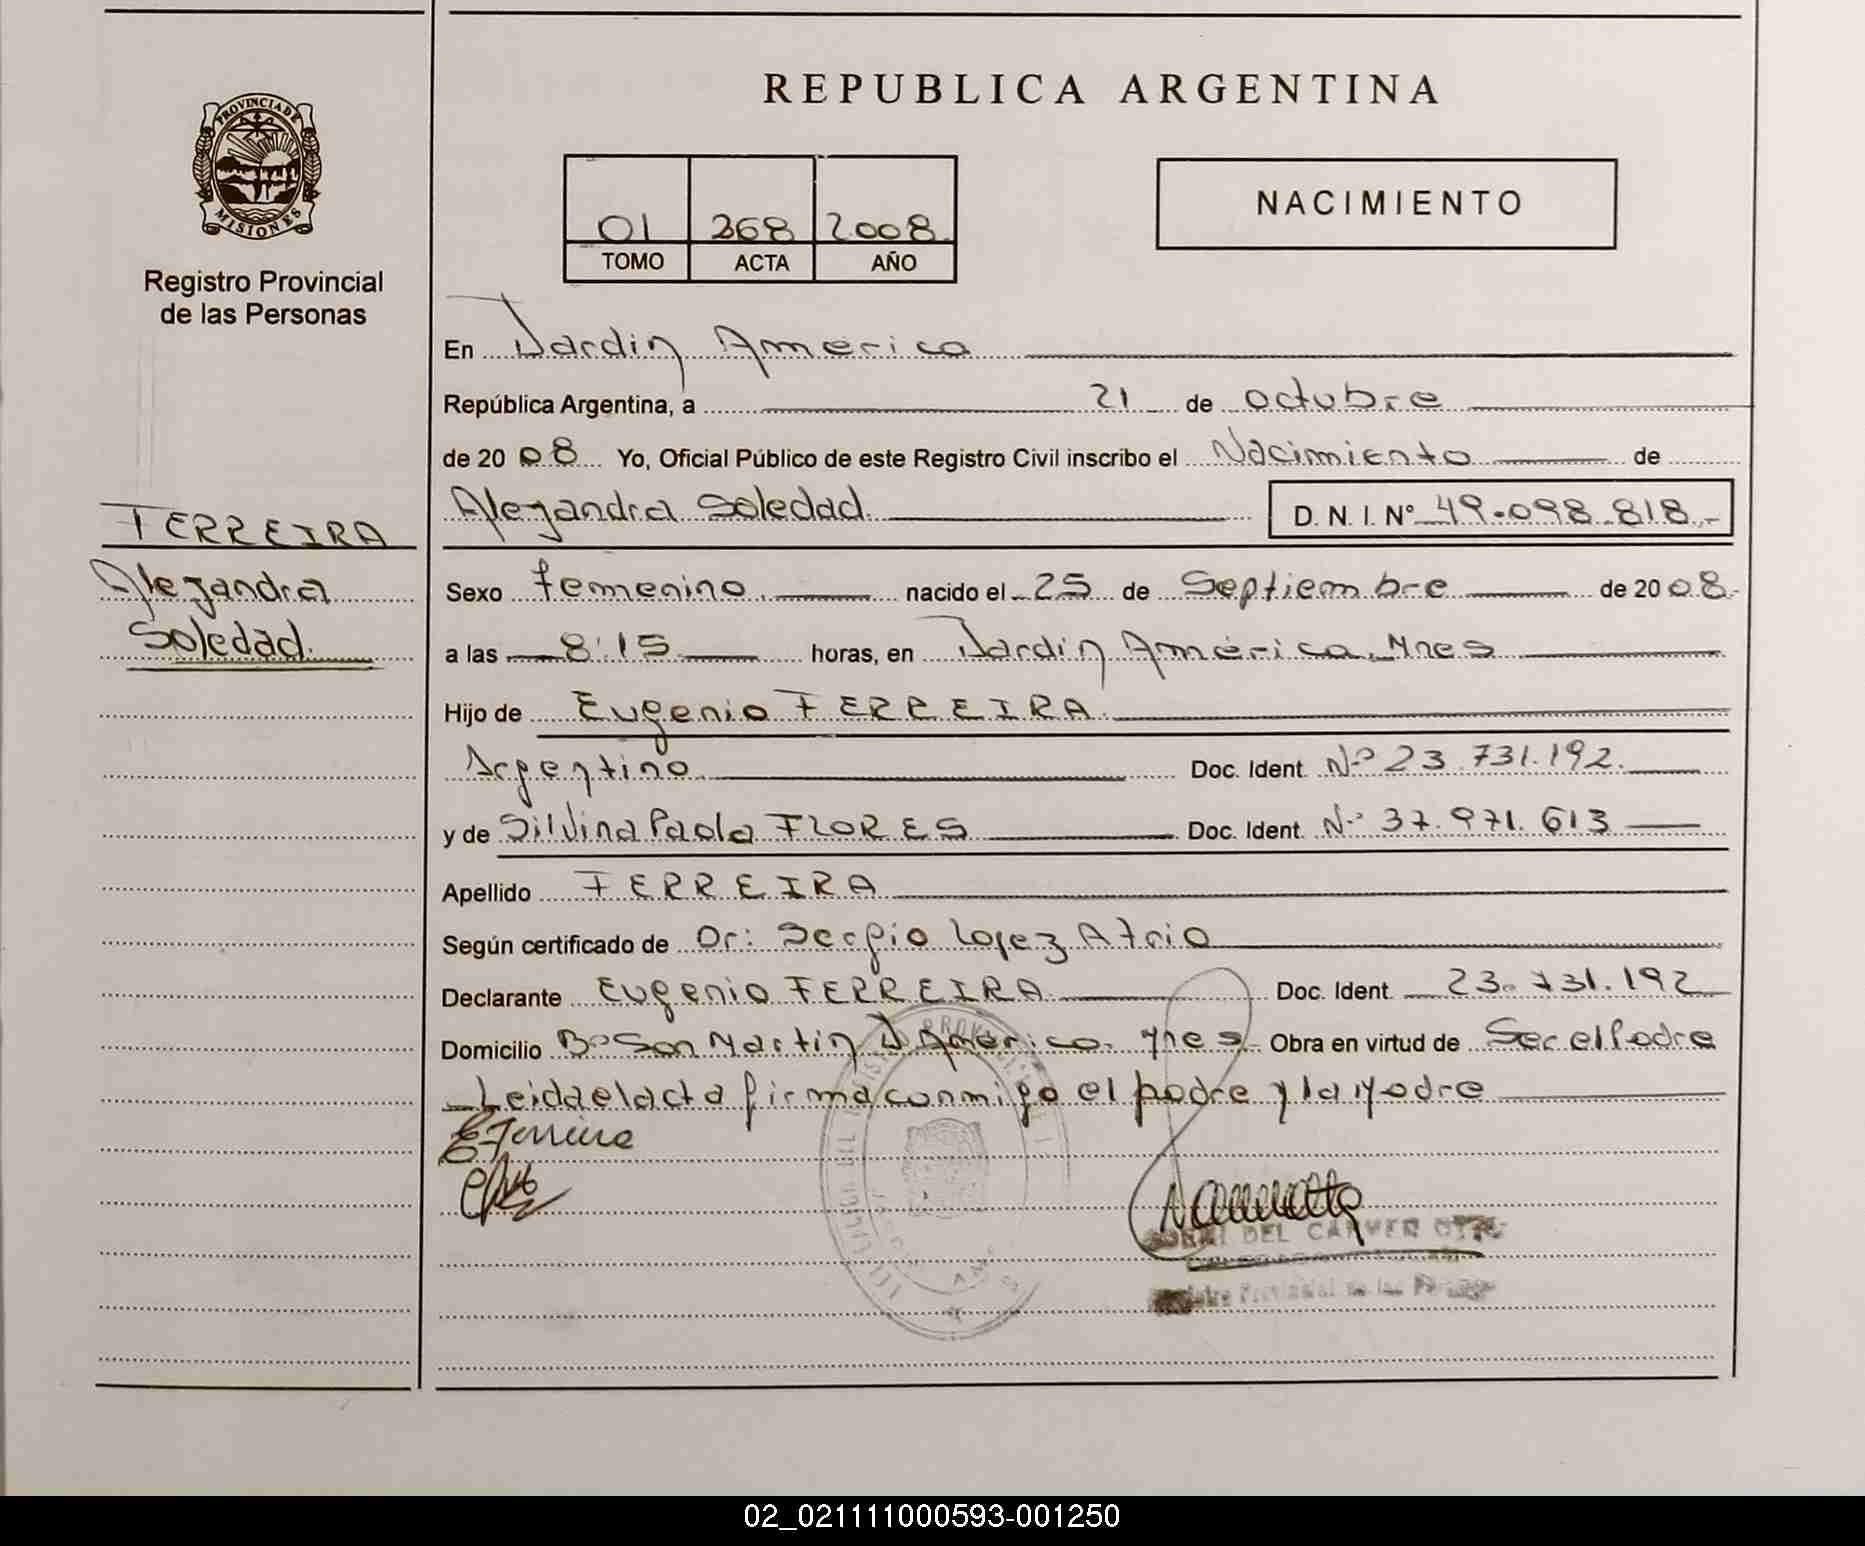 REPUBLICA ARGENTINA
PROVINCIA DE MISIONES
Registro Provincial
de las Personas
01 268 2008
TOMO ACTA AÑO
NACIMIENTO
En Jardin America
República Argentina, a 21 de octubre
de 2008 Yo, Oficial Público de este Registro Civil inscribo el Nacimiento de
Alejandra Soledad. D. N. I. N° 49.098.818.-
FERREIRA
Alejandra
Soledad.
Sexo Femenino. nacido el 25 de Septiembre de 2008.
a las 8:15 horas, en Jardin América. Mnes
Hijo de Eugenio FERREIRA.
Argentino Doc. Ident. N° 23.731.192.
y de Silvina Paola FLORES Doc. Ident. N° 37.971.613
Apellido FERREIRA
Según certificado de Dr: Sergio Lopez Atrio
Declarante Eugenio FERREIRA. Doc. Ident. 23.731.192
Domicilio B° San Martin J America. Mnes Obra en virtud de Ser el Padre
Leida el acta firma conmigo el padre y la Madre
E Ferreira
DEL CARMEN
Registro Provincial de las Personas
02_021111000593-001250